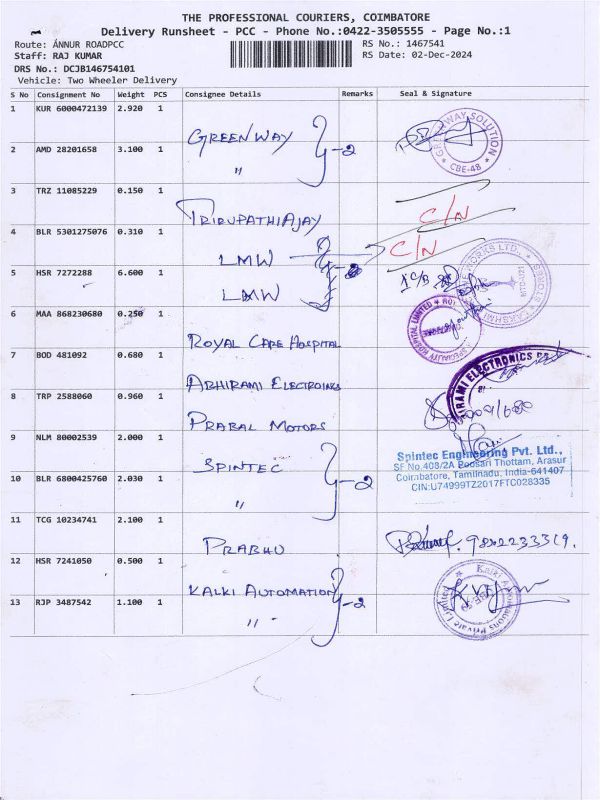 THE PROFESSIONAL COURIERS, COIMBATORE
Delivery Runsheet - PCC - Phone No.:0422-3505555 - Page No.:1
Route: ANNUR ROADPCC
RS No.: 1467541
Staff: RAJ KUMAR
RS Date: 02-Dec-2024
DRS No.: DCJB146754101
Vehicle: Two Wheeler Delivery
S No Consignment No Weight PCS Consignee Details Remarks Seal & Signature
1 KUR 6000472139 2.920 1 GREENWAY
GREENWAY SOLUTION
CBE-48
2 AMD 28201658 3.100 1 " -2
3 TRZ 11085229 0.150 1 TRIRUPATHIAJAY C/N
4 BLR 5301275076 0.310 1 LMW C/N
5 HSR 7272288 6.600 1 LMW
6 MAA 868230680 0.250 1 ROYAL CARE HOSPITAL
SPECIALITY HOSPITAL LIMITED
7 BOD 481092 0.680 1 ABHIRAMI ELECTROINKS
IRAMI ELECTRONICS
8 TRP 2588060 0.960 1 PRABAL MOTORS
9 NLM 80002539 2.000 1 SPINTEC
Spintec Engineering Pvt. Ltd.,
SF No.408/2A Poosari Thottam, Arasur
Coimbatore, Tamilnadu, India-641407
CIN:U74999TZ2017FTC028335
10 BLR 6800425760 2.030 1 " -2
11 TCG 10234741 2.100 1 PRABHU
12 HSR 7241050 0.500 1 KALKI AUTOMATION
Kalki Automations Private Limited
13 RJP 3487542 1.100 1 " -2